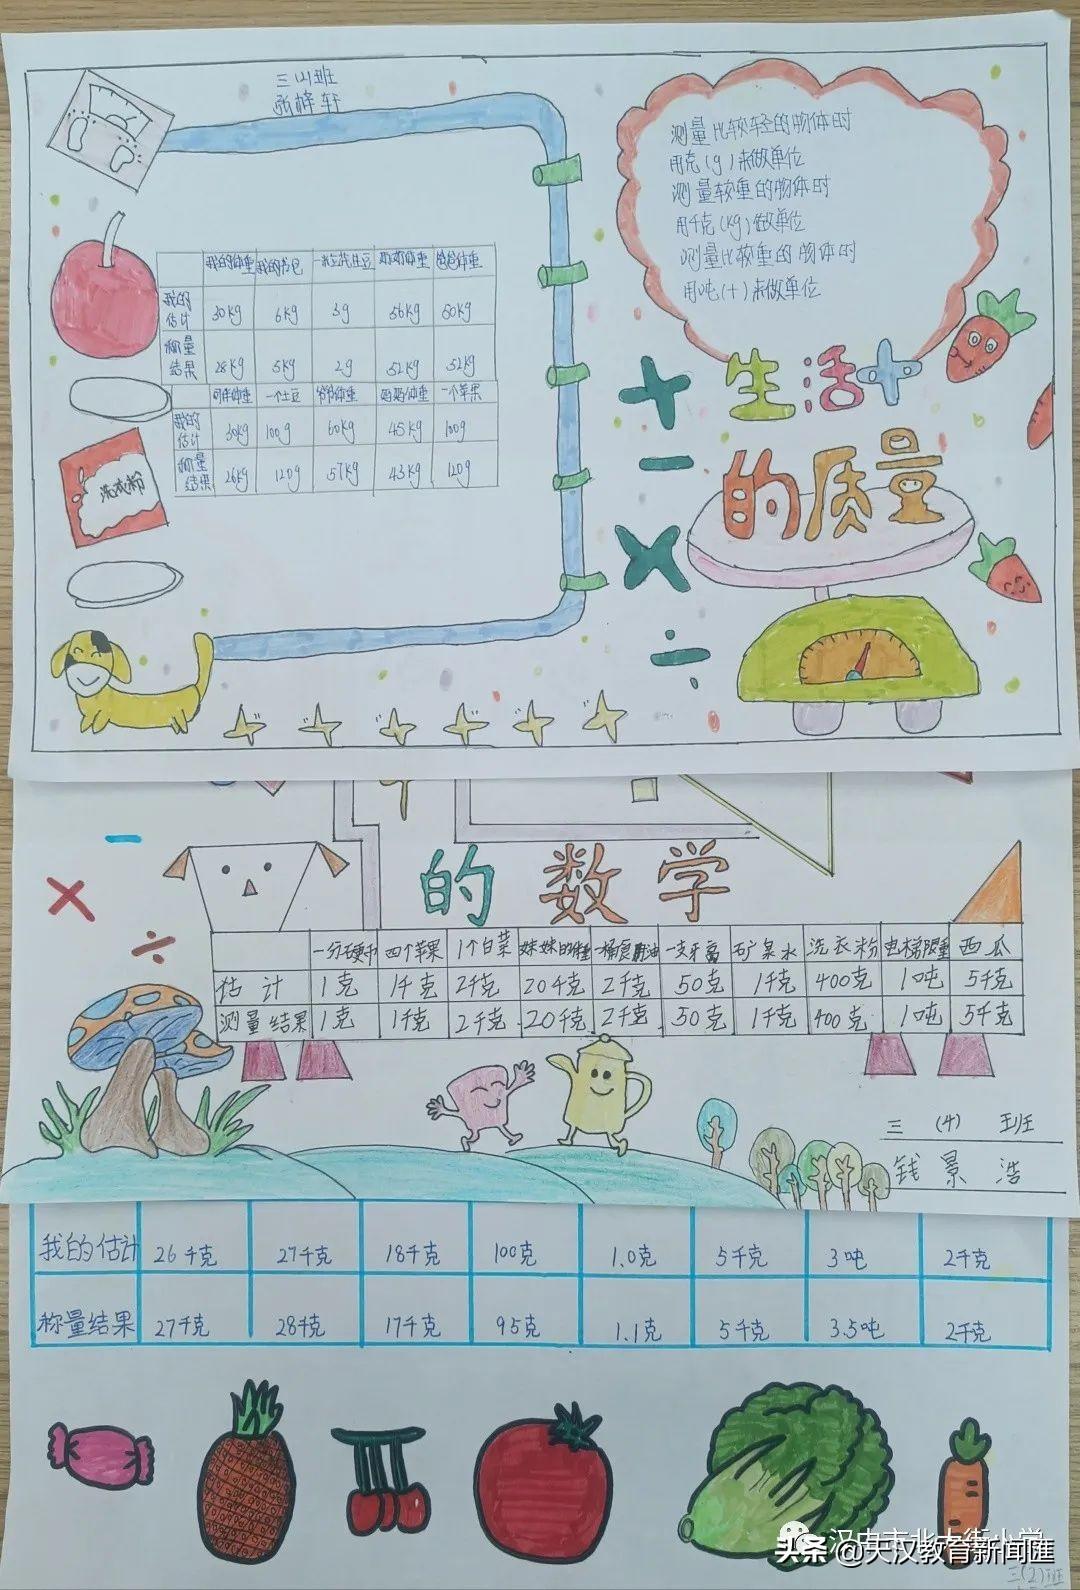 三(4)班
测量比较轻的物体时
用克(g)来做单位
测量较重的物体时
用千克(kg)做单位
测量比较重的物体时
用吨(t)来做单位
生活中
的质量
我的体重 我的书包 一粒花生豆 奶奶体重 爸爸体重
我的估计 30kg 6kg 3g 56kg 50kg
称量结果 28kg 5kg 2g 52kg 52kg
一个土豆 爷爷体重 妈妈体重 一个苹果
我的估计 30kg 100g 60kg 45kg 100g
称量结果 26kg 120g 57kg 43kg 120g
洗衣粉
的数学
一分硬币 四个苹果 1个白菜 妹妹的体重 一桶食用油 一支牙膏 矿泉水 洗衣粉 电梯限重 西瓜
估计 1克 1千克 2千克 20千克 2千克 50克 1千克 400克 10吨 5千克
测量结果 1克 1千克 2千克 20千克 2千克 50克 1千克 400克 10吨 5千克
三(4)班
钱景浩
我的估计 26千克 27千克 18千克 100克 1.0克 5千克 3吨 2千克
称量结果 27千克 28千克 17千克 95克 1.1克 5千克 3.5吨 2千克
汉中市北大街小学
头条@天汉教育新闻匯
三(2)班